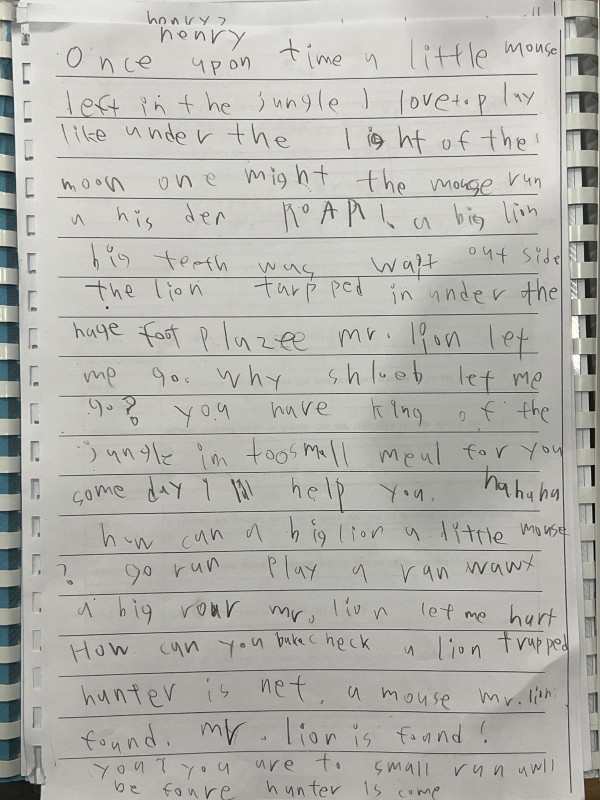 henry?
henry
Once upon time a little mouse
left in the jungle I love to play
like under the light of the
moon one might the mouse run
a his den ROAR! a big lion
big teeth was wait out side
the lion tarpped in under the
huge foot plazee mr. lion let
me go. why shloob let me
go? you have king of the
jungle im too small meal for you
some day I'll help you. hahaha
how can a big lion a little mouse
? go run play a ran
a big rour mr. lion let me hurt
How can you check a lion trapped
hunter is net. a mouse mr. lion
found. mr. lion is found!
you? you are to small run
be foure hunter is come